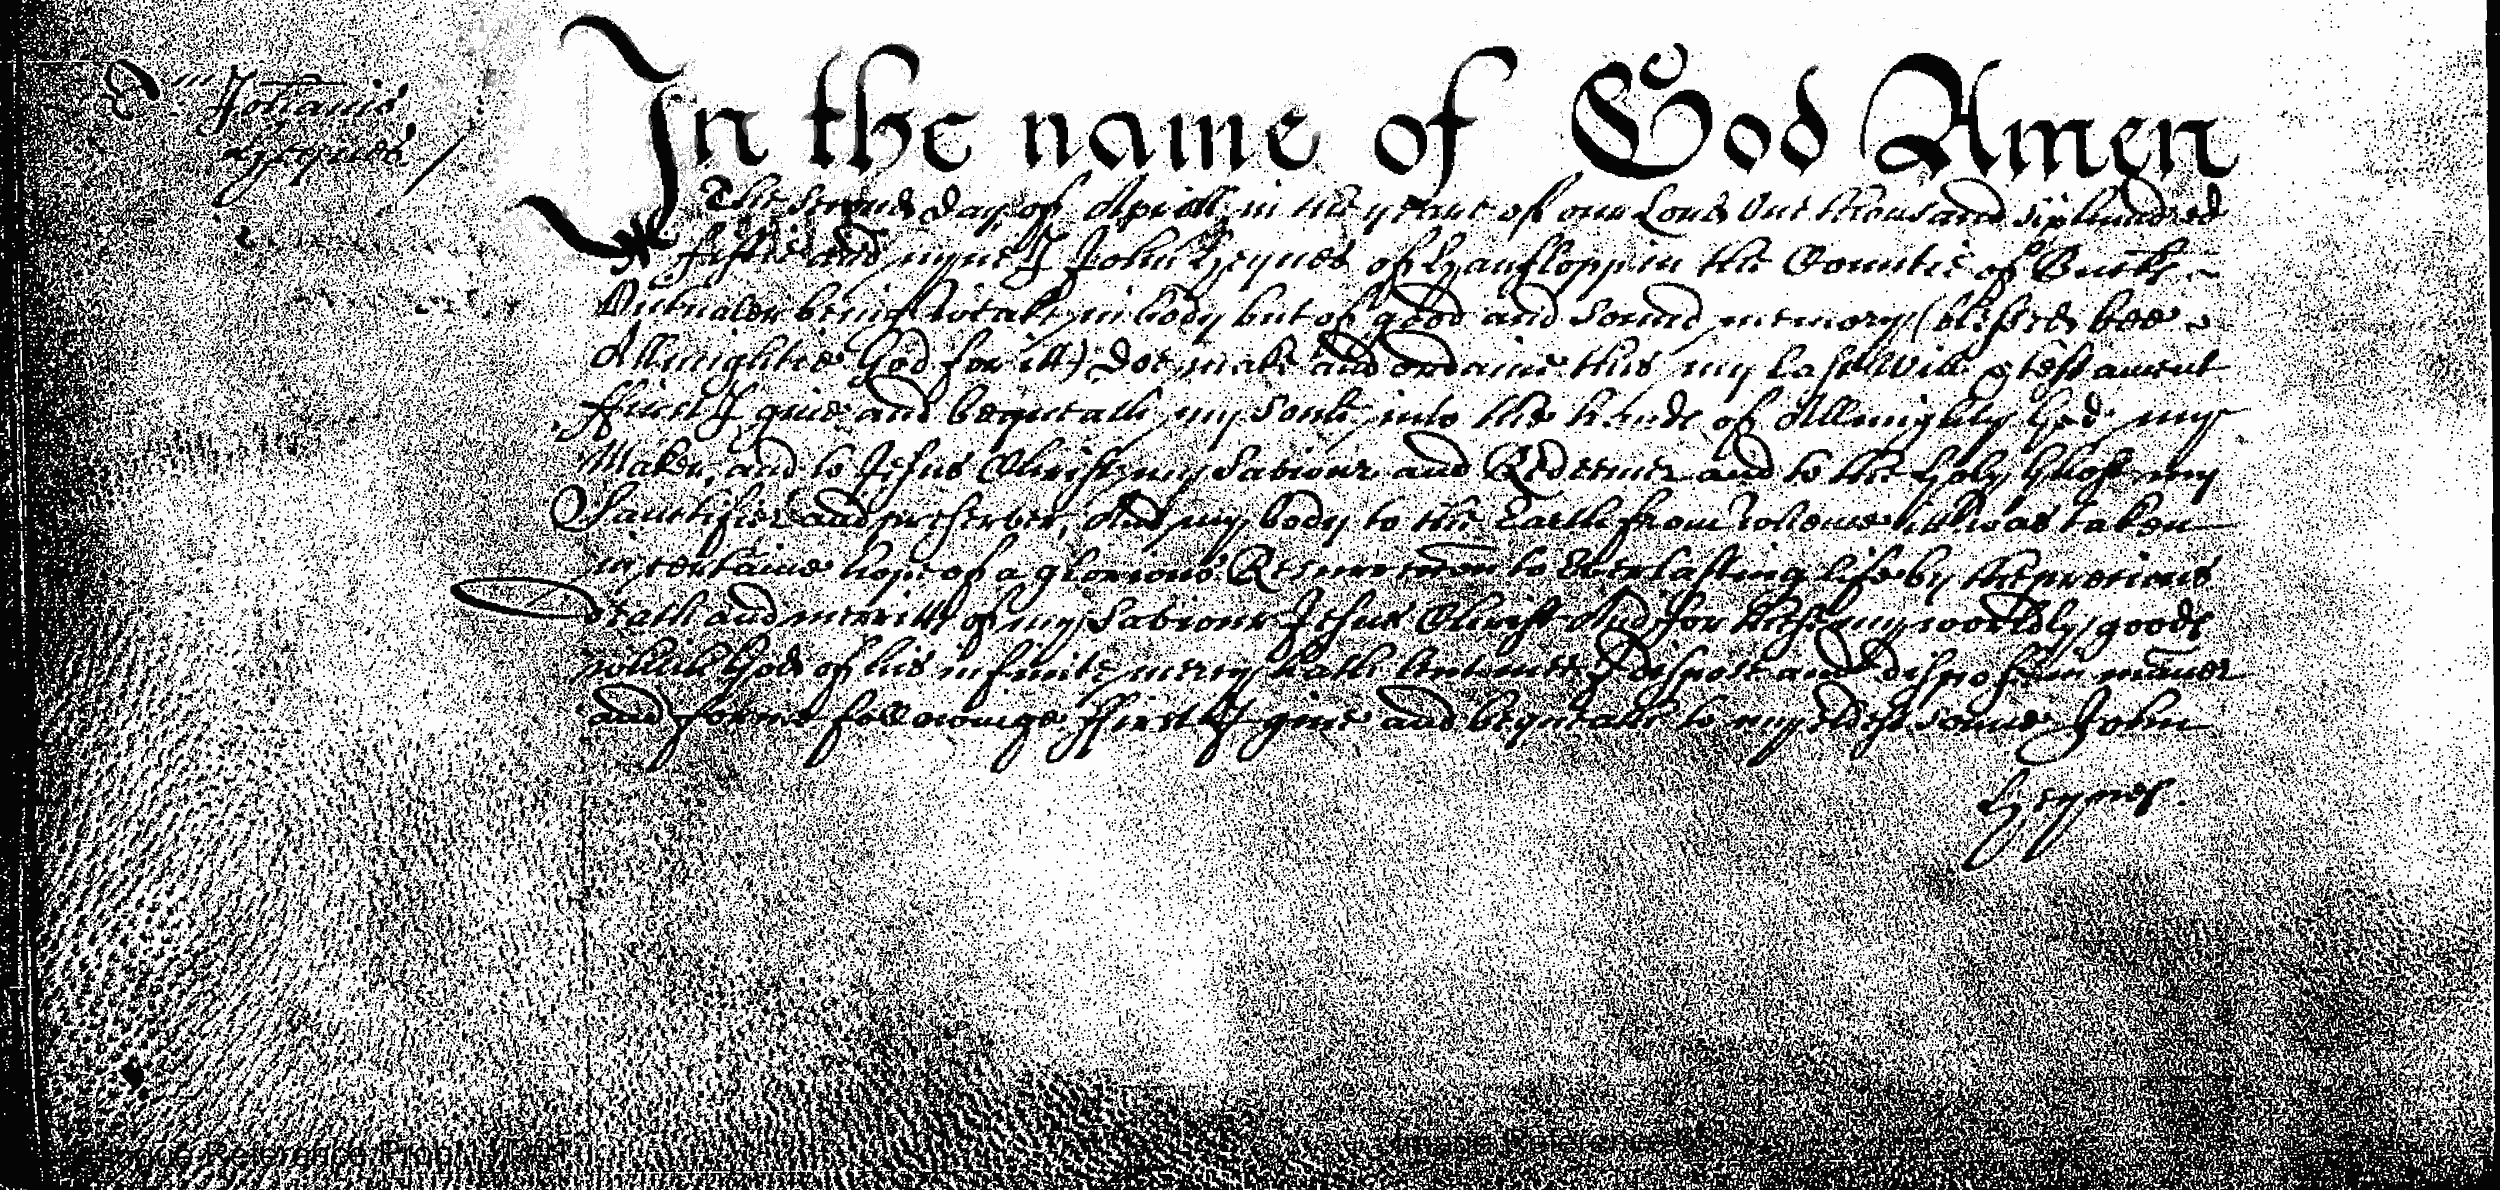 Johannis
Heynes
In the name of God Amen
The second day of Aprill in the yeare of our Lord One thousand six hundred
fiftie and nyne I John Heynes of Hanslopp in the Countie of Bucks
Victualer being weake in body but of good and sound memory (blessed bee
Allmightie God for itt) Doe make and ordaine this my last Will & testament
ffirst I give and bequeath my soule into the hands of Allmighty God my
Maker, and to Jesus Christ my Saviour and Redeemer and to the Holy Ghost my
Sanctifier and preserver, And my body to the Earth from whence itt was taken
in certaine hope of a glorious Resurreccon to Everlasting life by the pretious
Death and meritts of my Saviour Jesus Christ And for these my worldly goods
which God of his infinite mercy hath lent mee I dispose and dispose in manner
and forme followinge ffirst I give and bequeath to my eldest sonne John
Heynes.
Reference Prob
Image Reference